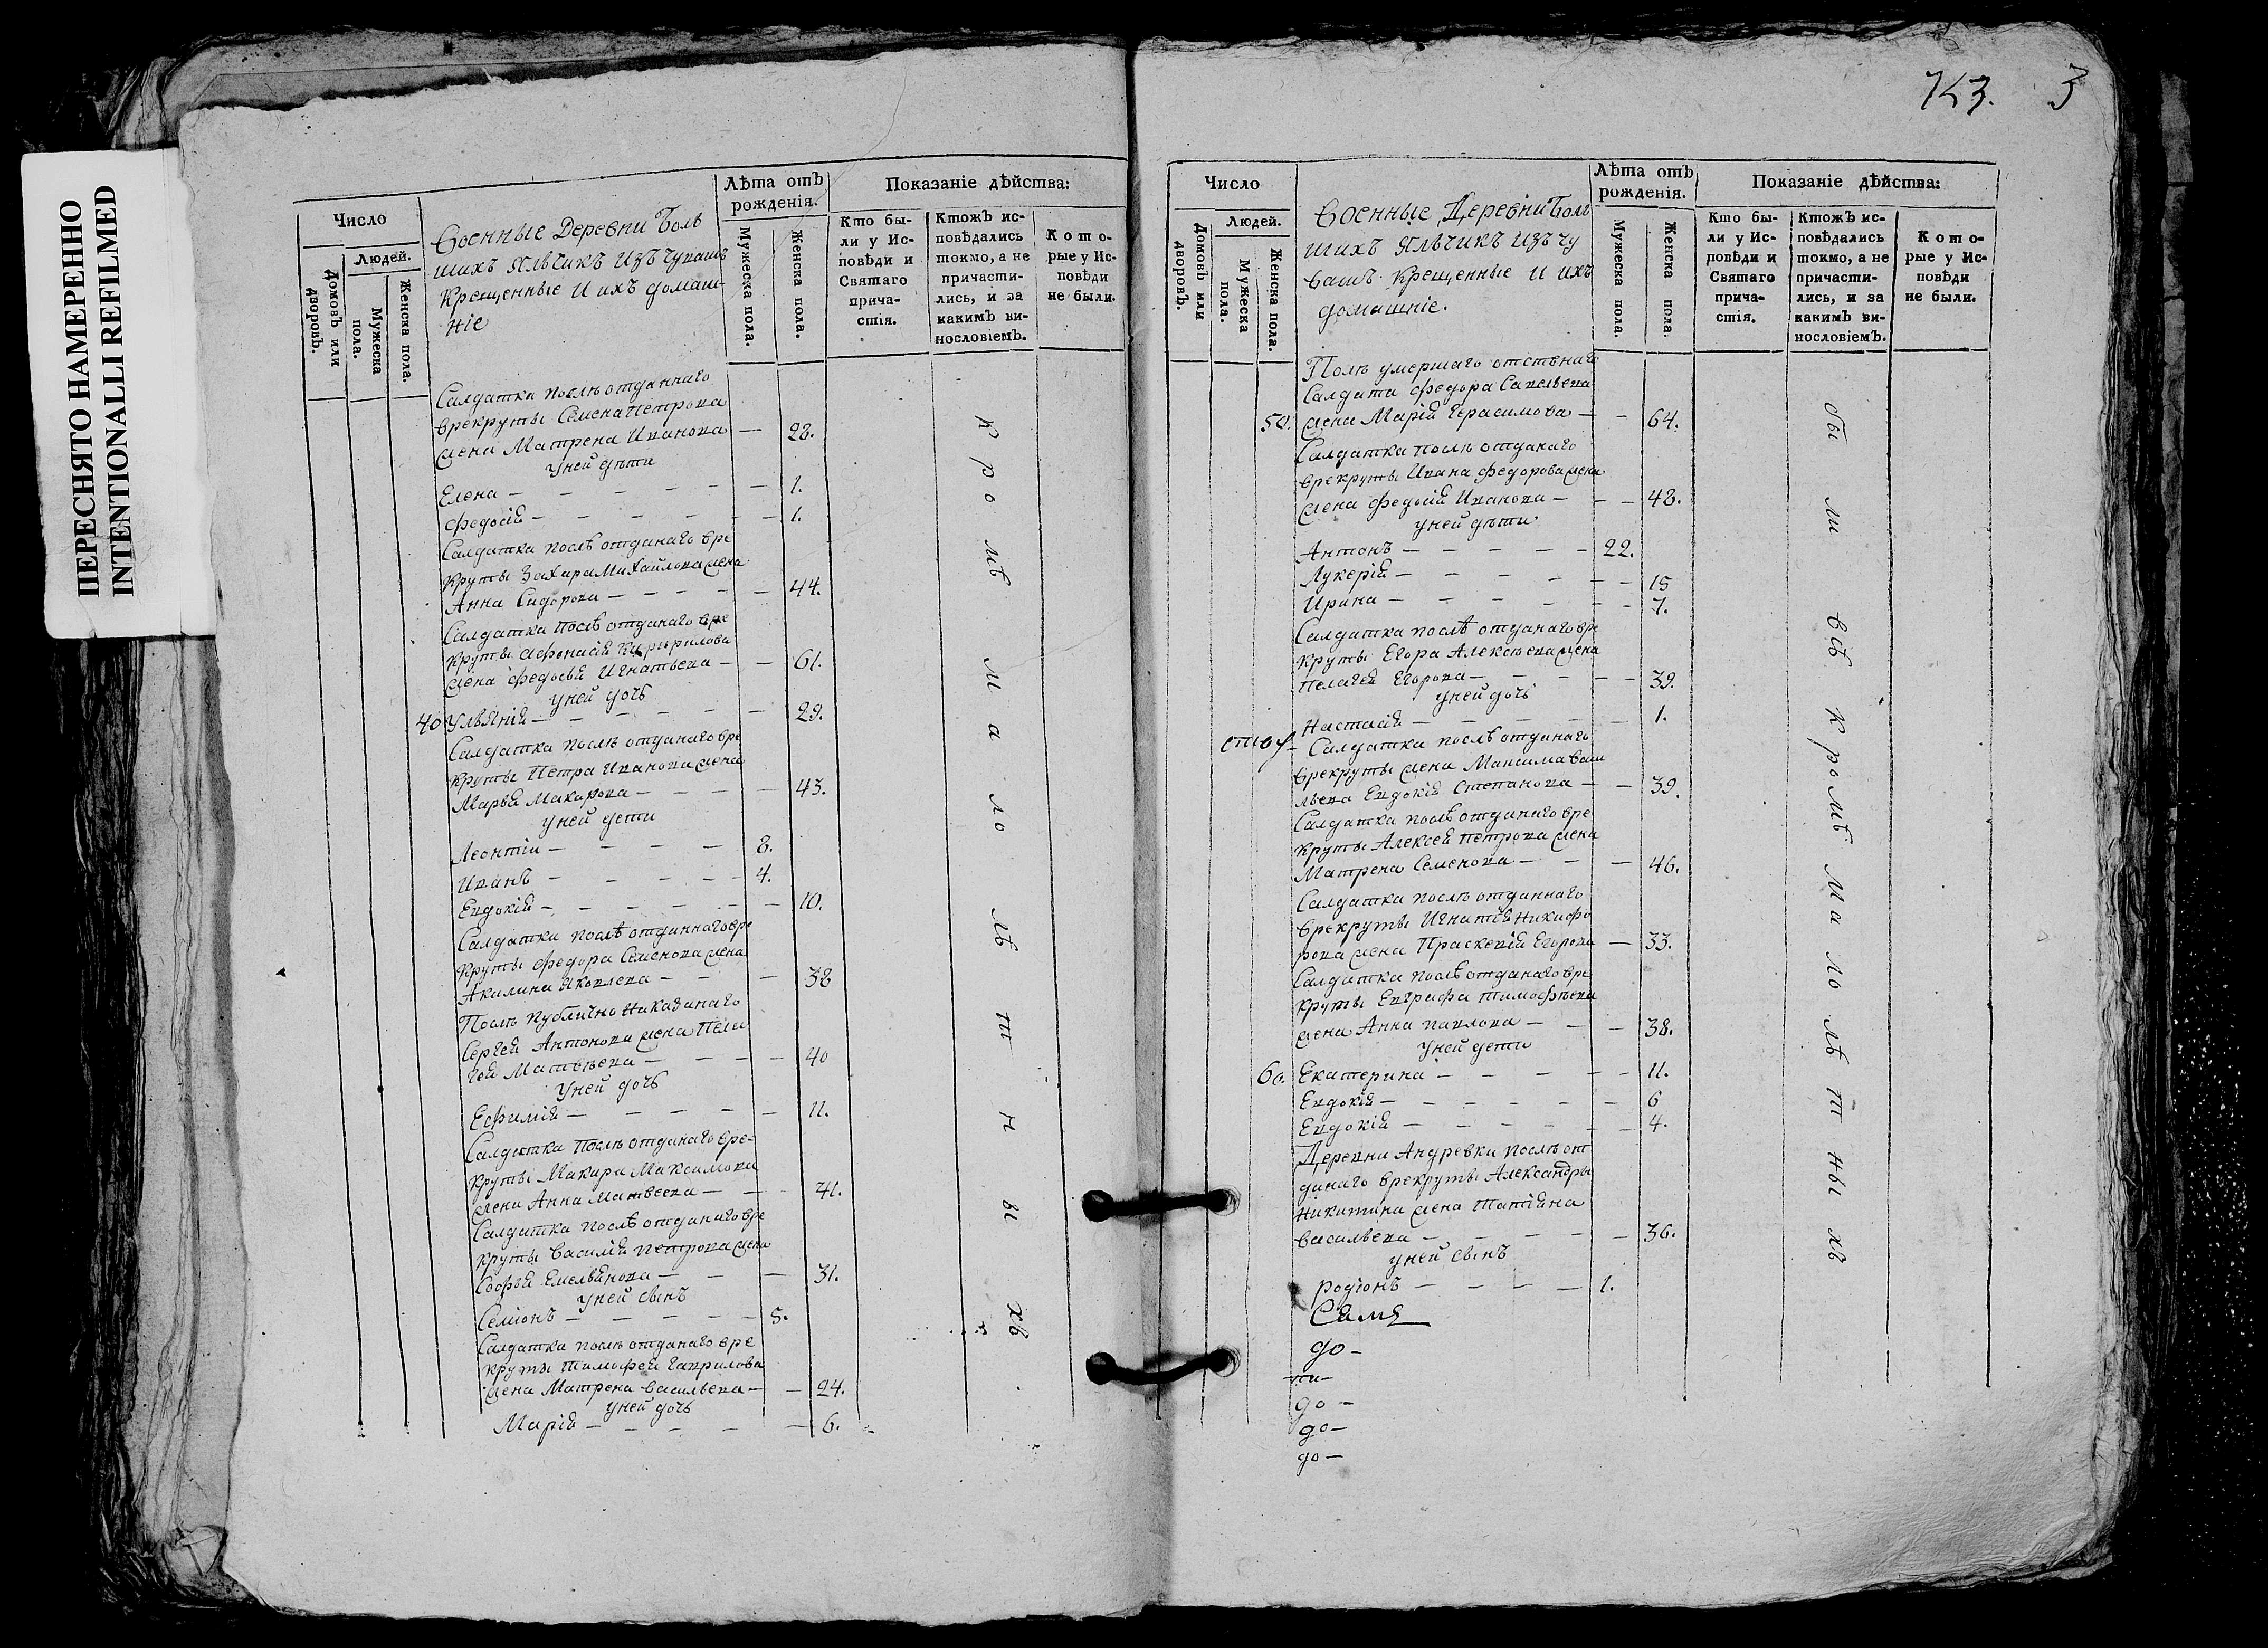 ПЕРЕСНЯТО НАМЕРЕННО
INTENTIONALLI REFILMED
Число
Людей.
Домовъ или дворовъ.
Мужеска пола.
Женска пола.
Военные Деревни Боль
шихъ Яльчикъ изъ чувашъ
крещенные и ихъ домаш-
ніе
Лѣта отъ
рожденія.
Мужеска пола.
Женска пола.
Показаніе дѣйства:
Кто бы-
ли у Ис-
повѣди и
Святаго
прича-
стія.
Ктожъ ис-
повѣдались
токмо, а не
причасти-
лись, и за
какимъ ви-
нословіемъ.
Кото-
рые у Ис-
повѣди
не были.
Салдатка послѣ отданнаго
врекруты Семена Петрова
жена Матрена Иванова — 28.
унеи дѣти
Елена — 1.
Федосія — 1.
Салдатка послѣ отданаго вре
круты Захара Михаилова жена
Анна Сидорова — 44.
Салдатка послѣ отданаго вре
круты Афонасія Киририлова
жена Федосья Игнатьева — 61.
унеи дочь
40 Ульянія — 29.
Салдатка послѣ отданаго вре
круты Петра Иванова жена
Марья Макарова — 43.
унеи дети
Леонтіи — 8.
Иванъ — 4.
Евдокія — 10.
Салдатка послѣ отданнаго вре
круты Федора Семенова жена
Акилина Яковлева — 38
Послѣ публично наказанаго
Сергея Антонова жена Пела
гея Матвѣева — 40
унеи дочь
Ефимія — 11.
Салдатка послѣ отданаго вре-
круты Макара Максимова
жена Анна Матвеева — 41.
Салдатка послѣ отданаго вре
круты Василія Петрова жена
Софья Емельянова — 31.
унеи сынъ
Семіонъ — 5.
Салдатка послѣ отданаго вре
круты Тимофея Гаврилова
жена Матрена Васильева — 24.
унеи дочь
Марія — 6.
кромѣ малолѣтныхъ
743. 3
Число
Людей.
Домовъ или дворовъ.
Мужеска пола.
Женска пола.
Военные Деревни Боль
шихъ Яльчикъ изъ чу
вашъ крещенные и ихъ
домашніе.
Лѣта отъ
рожденія.
Мужеска пола.
Женска пола.
Показаніе дѣйства:
Кто бы-
ли у Ис-
повѣди и
Святаго
прича-
стія.
Ктожъ ис-
повѣдались
токмо, а не
причасти-
лись, и за
какимъ ви-
нословіемъ.
Кото-
рые у Ис-
повѣди
не были.
Послѣ умершаго отставнаго
Салдата Федора Савельева
50. жена Марія Герасимова — 64.
Салдатка послѣ отданаго
врекруты Ивана Федорова жена
жена Федосія Иванова — 48.
унеи дѣти
Антонъ — 22.
Лукерія — 15
Ирина — 7.
Салдатка послѣ отданаго вре
круты Егора Алексѣева жена
Пелагея Егорова — 39.
унеи дочь
Настасія — 1.
Салдатка послѣ отданаго
врекруты жена Максима Васи
льева Евдокія Степанова — 39.
Салдатка послѣ отданаго вре
круты Алексея Петрова жена
Матрена Семенова — 46.
Салдатка послѣ отданнаго
врекруты Игнатія Никифо
рова жена Прасковія Егорова — 33.
Салдатка послѣ отданаго вре
круты Евграфа Тимофѣева
жена Анна Павлова — 38.
унеи дети
60. Екатерина — 11.
Евдокія — 6
Евдокія — 4.
Деревни Андревки послѣ от
данаго врекруты Александры
Никитина жена Татіяна
Васильева — 36.
унеи сынъ
Родіонъ — 1.
до —
до —
до —
до —
были всѣ кромѣ малолѣтныхъ